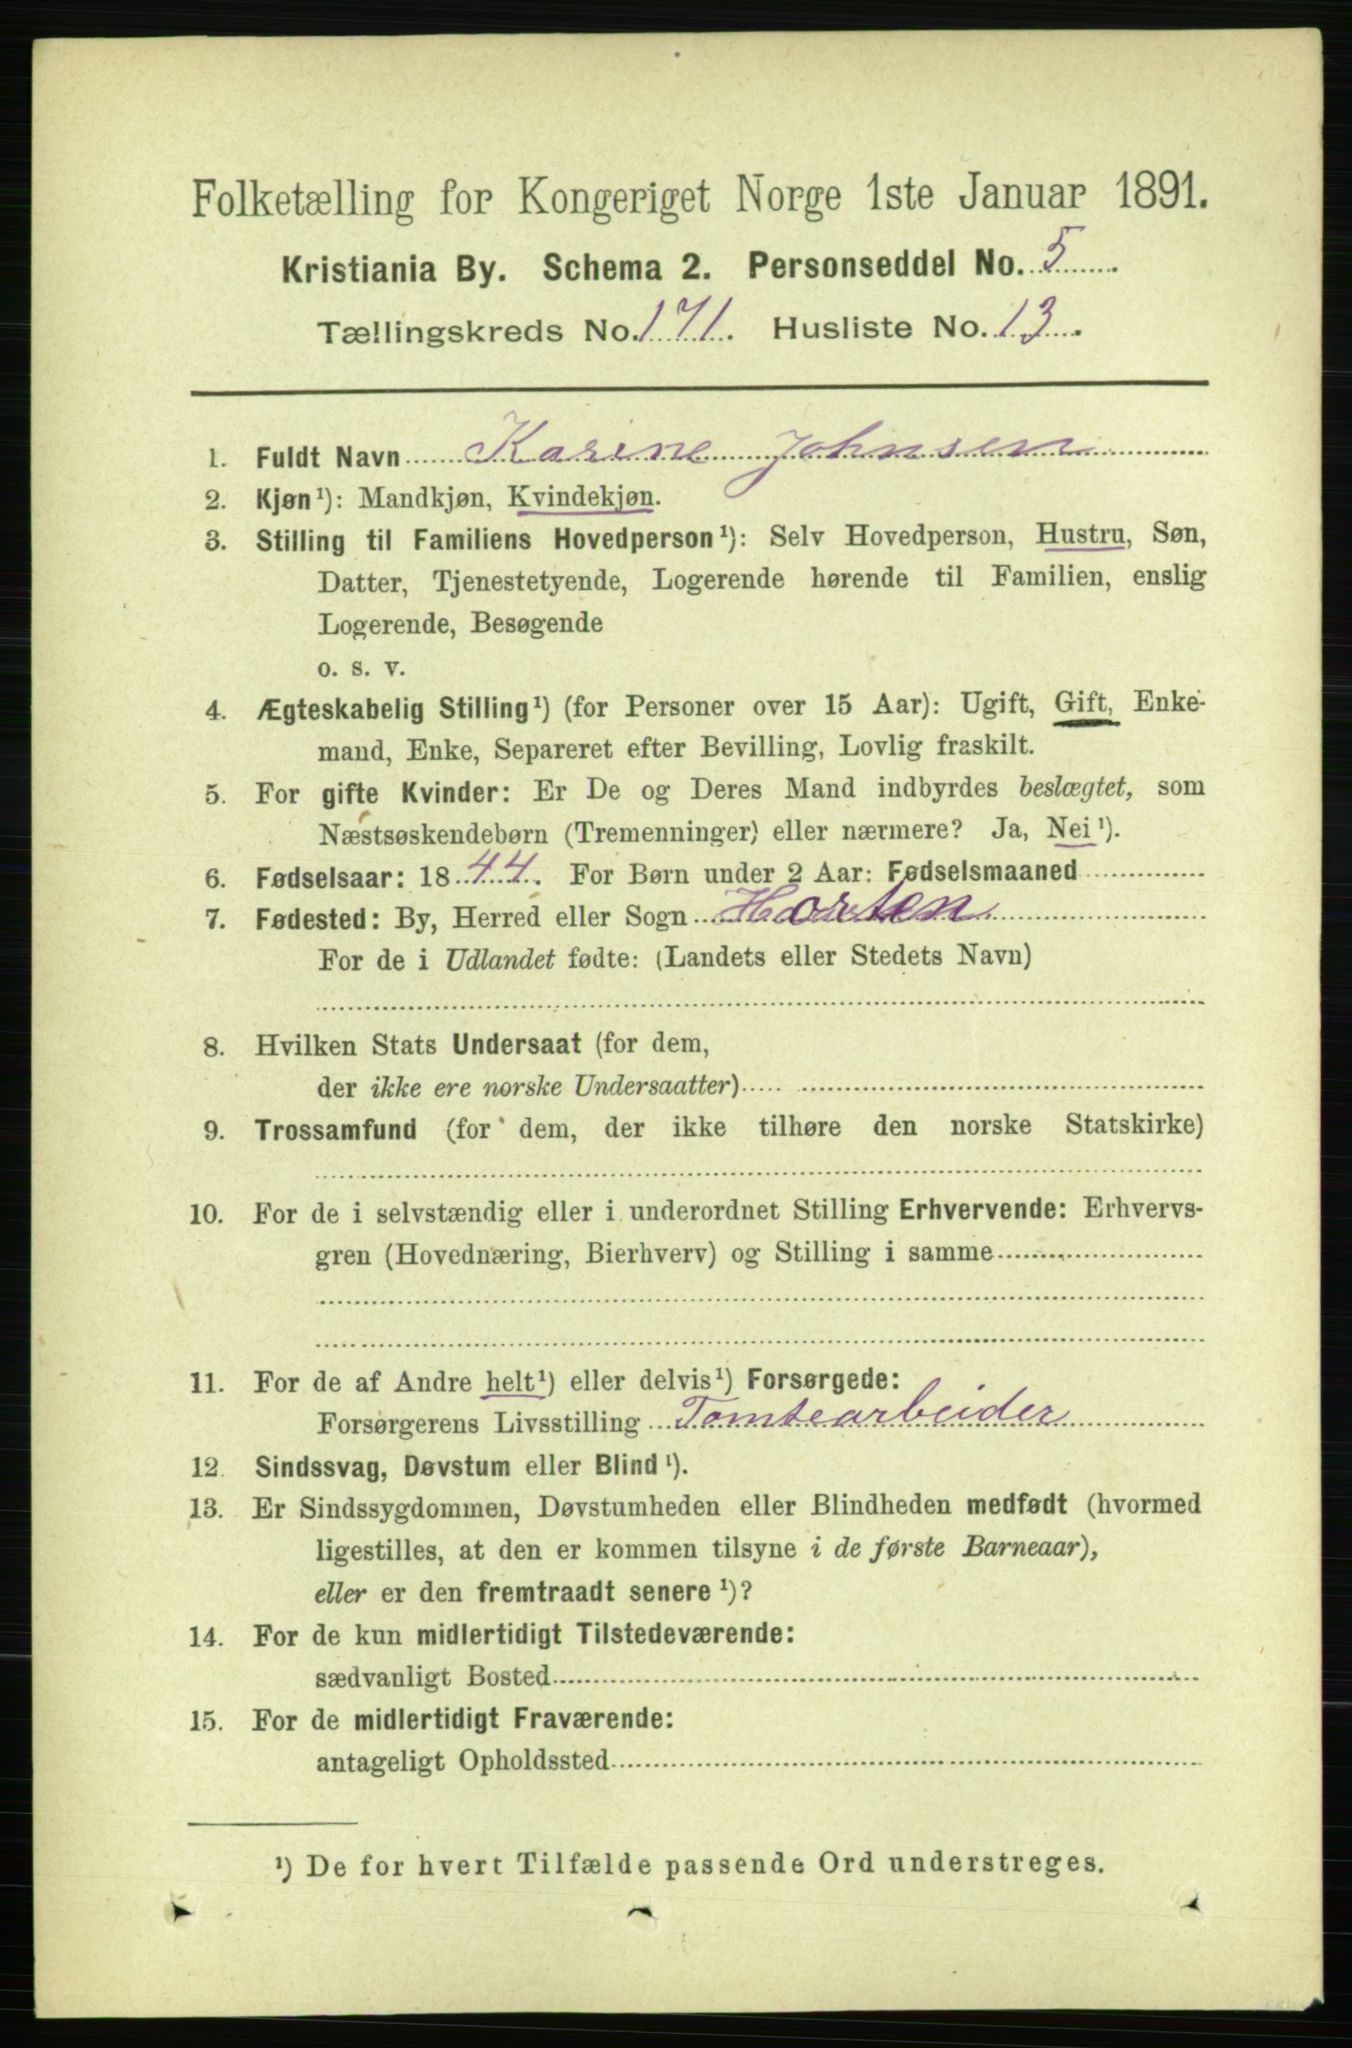 Folketælling for Kongeriget Norge 1ste Januar 1891.
Kristiania By. Schema 2. Personseddel No. 5
Tællingskreds No. 171. Husliste No. 13.
1. Fuldt Navn Karine Johnsen
2. Kjøn¹): Mandkjøn, Kvindekjøn.
3. Stilling til Familiens Hovedperson¹): Selv Hovedperson, Hustru, Søn,
Datter, Tjenestetyende, Logerende hørende til Familien, enslig
Logerende, Besøgende
o. s. v.
4. Ægteskabelig Stilling¹) (for Personer over 15 Aar): Ugift, Gift, Enke-
mand, Enke, Separeret efter Bevilling, Lovlig fraskilt.
5. For gifte Kvinder: Er De og Deres Mand indbyrdes beslægtet, som
Næstsøskendebørn (Tremenninger) eller nærmere? Ja, Nei¹).
6. Fødselsaar: 1844. For Børn under 2 Aar: Fødselsmaaned
7. Fødested: By, Herred eller Sogn Horten
For de i Udlandet fødte: (Landets eller Stedets Navn)
8. Hvilken Stats Undersaat (for dem,
der ikke ere norske Undersaatter)
9. Trossamfund (for dem, der ikke tilhøre den norske Statskirke)
10. For de i selvstændig eller i underordnet Stilling Erhvervende: Erhvervs-
gren (Hovednæring, Bierhverv) og Stilling i samme
11. For de af Andre helt¹) eller delvis¹) Forsørgede:
Forsørgerens Livsstilling Tomtearbeider
12. Sindssvag, Døvstum eller Blind¹).
13. Er Sindssygdommen, Døvstumheden eller Blindheden medfødt (hvormed
ligestilles, at den er kommen tilsyne i de første Barneaar),
eller er den fremtraadt senere¹)?
14. For de kun midlertidigt Tilstedeværende:
sædvanligt Bosted
15. For de midlertidigt Fraværende:
antageligt Opholdssted
¹) De for hvert Tilfælde passende Ord understreges.